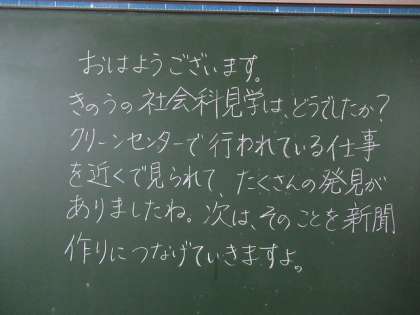 おはようございます。
きのうの社会科見学は、どうでしたか？
クリーンセンターで行われている仕事
を近くで見られて、たくさんの発見が
ありましたね。次は、そのことを新聞
作りにつなげていきますよ。